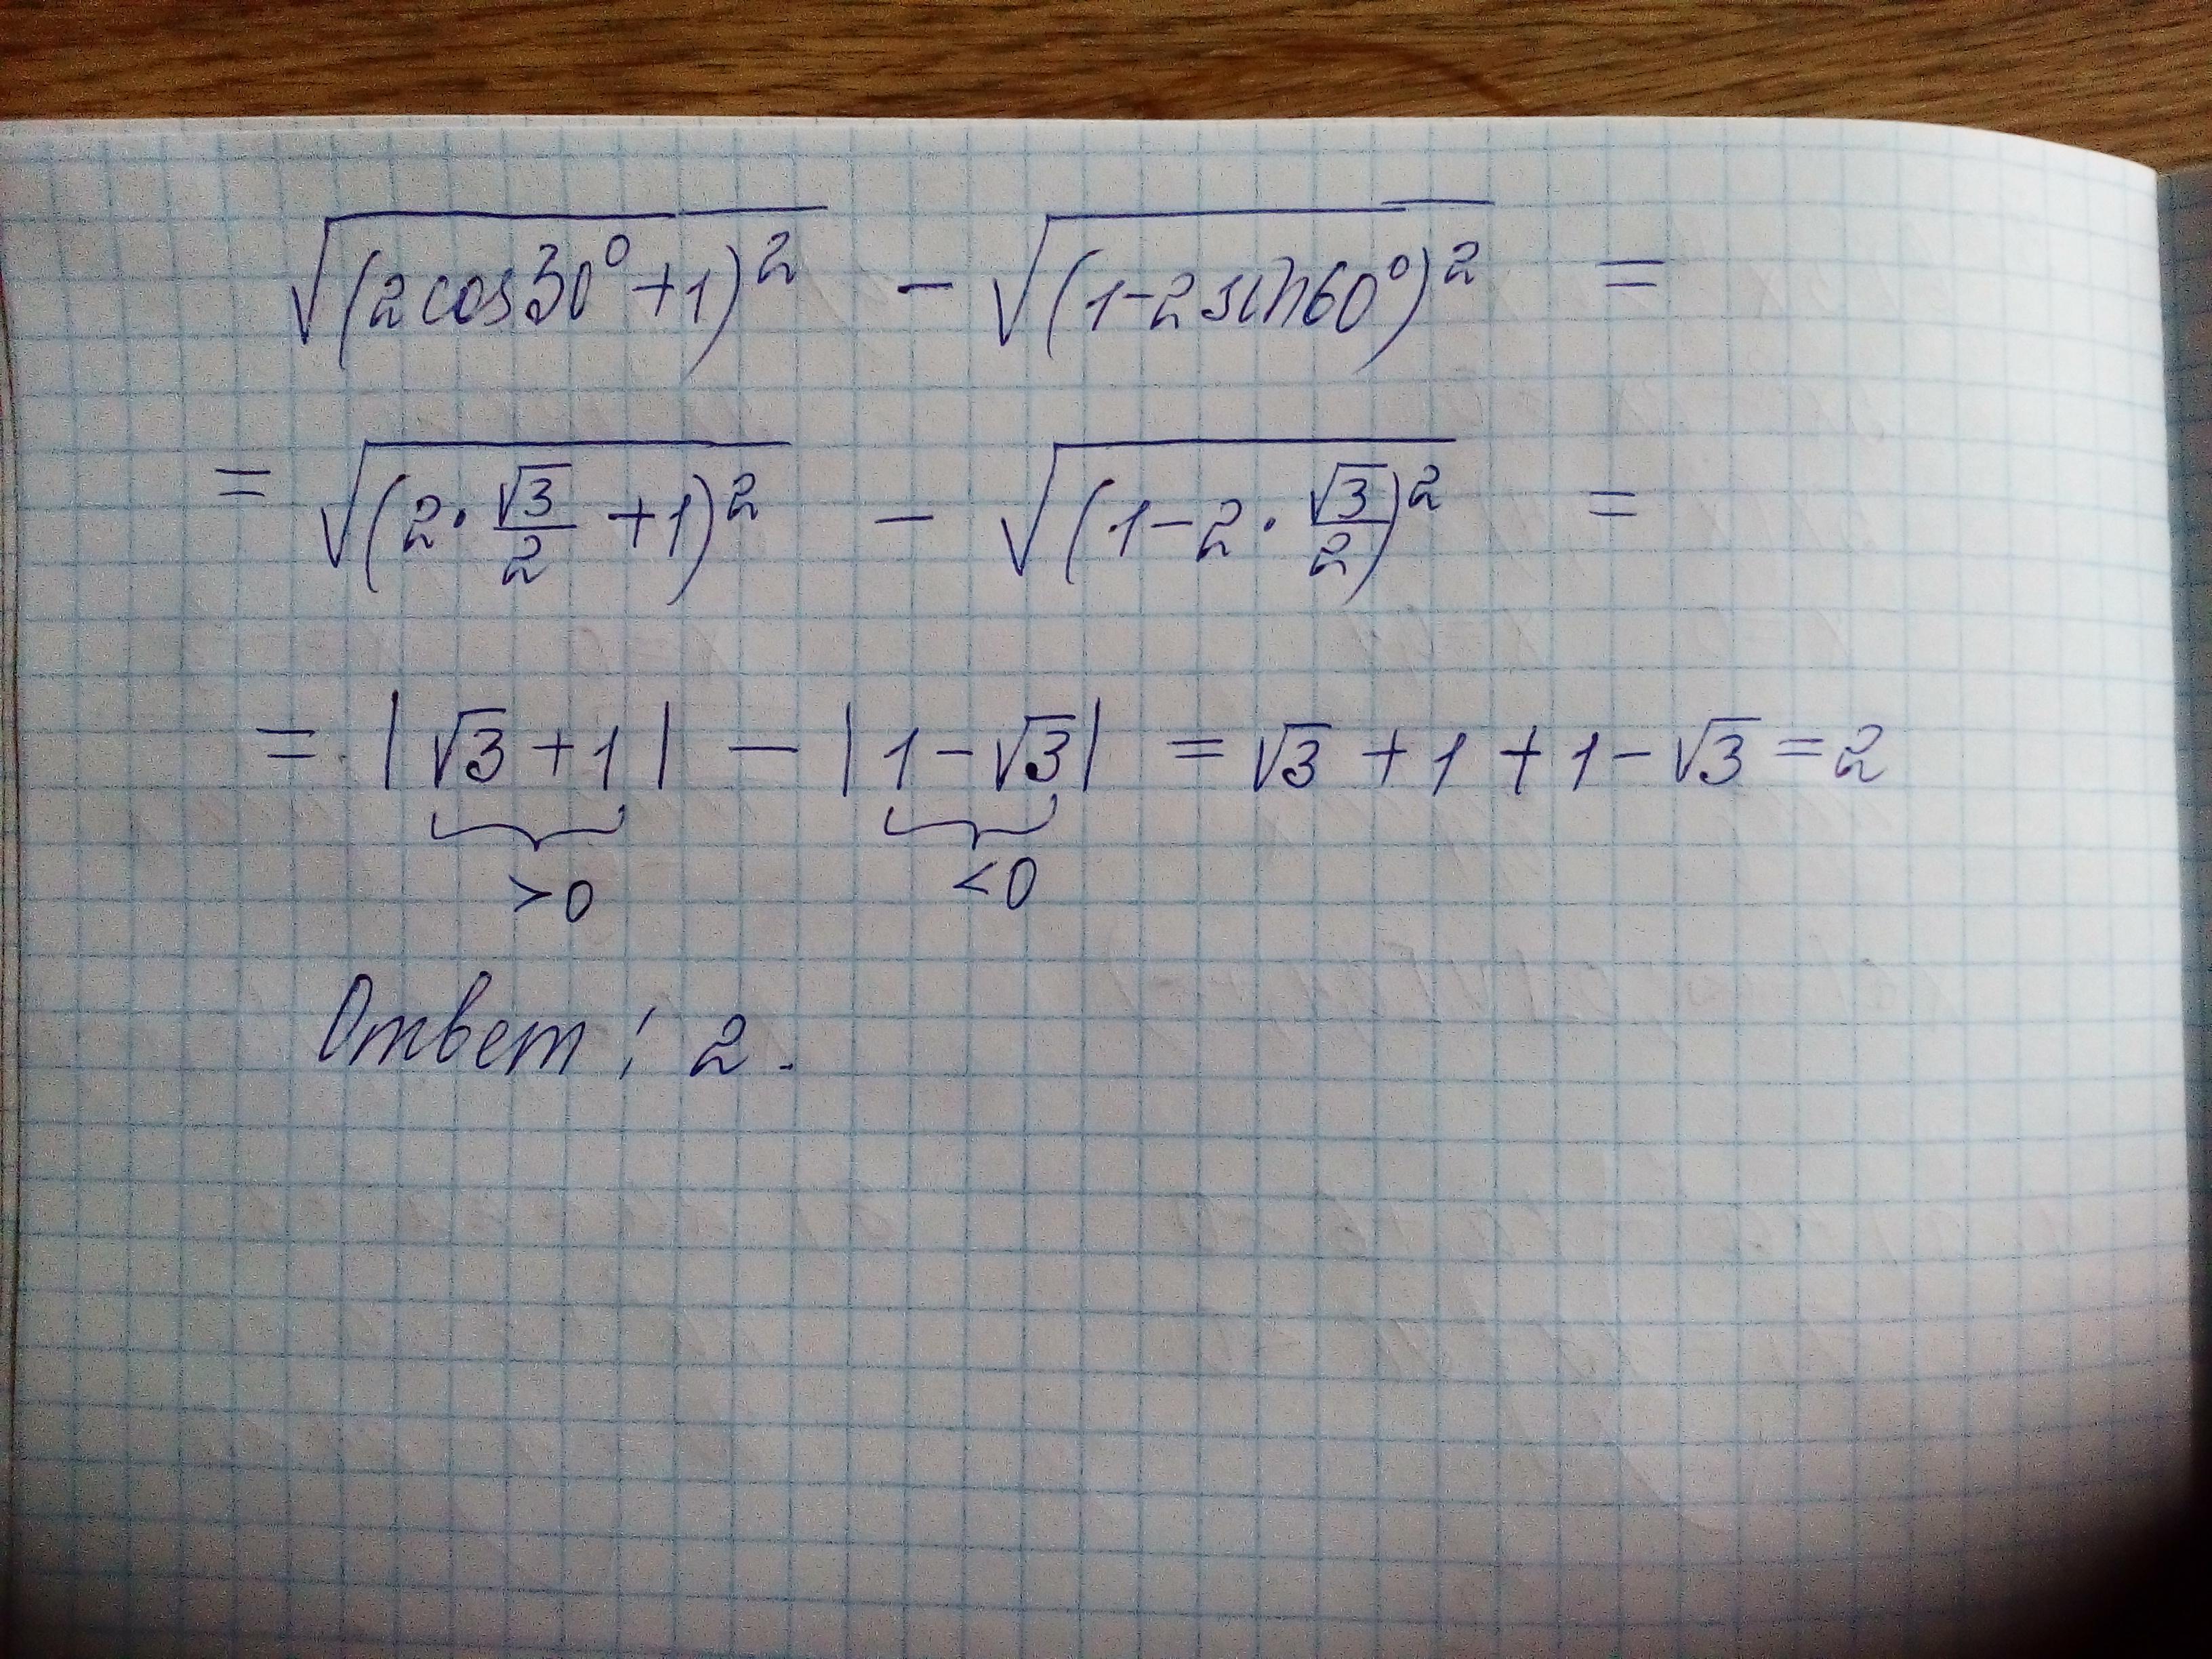 √(2cos30°+1)² - √(1-2sin60°)² =
= √(2·√3/2 +1)² - √(1-2·√3/2)² =
= |√3+1| - |1-√3| = √3+1+1-√3=2
>0 <0
Ответ: 2.